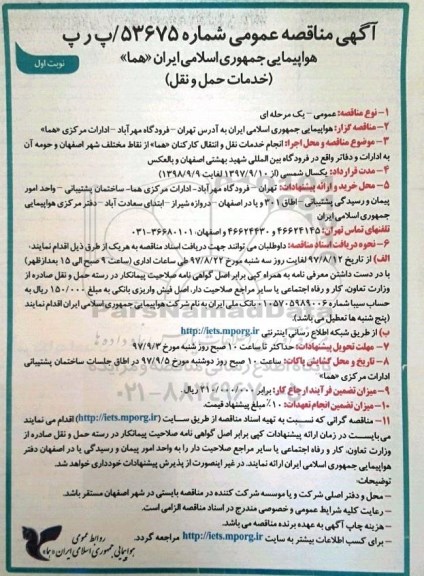 آگهی مناقصه عمومی شماره ۵۳۶۷۵/پ ر پ
هواپیمایی جمهوری اسلامی ایران «هما»
(خدمات حمل و نقل)
نوبت اول
۱- نوع مناقصه: عمومی - یک مرحله ای
۲- مناقصه گزار: هواپیمایی جمهوری اسلامی ایران به آدرس تهران - فرودگاه مهرآباد - ادارات مرکزی «هما»
۳- موضوع مناقصه و محل اجرا: انجام خدمات نقل و انتقال کارکنان «هما» از نقاط مختلف شهر اصفهان و حومه آن
به ادارات و دفاتر واقع در فرودگاه بین المللی شهید بهشتی اصفهان و بالعکس
۴- مدت قرارداد: یکسال شمسی (از ۱۳۹۷/۹/۱۰ لغایت ۱۳۹۸/۹/۹)
۵- محل خرید و ارائه پیشنهادات: تهران - فرودگاه مهرآباد- ادارات مرکزی هما- ساختمان پشتیبانی - واحد امور
پیمان و رسیدگی پشتیبانی - اطاق ۳۰۱ و یا در اصفهان - دروازه شیراز - ابتدای سعادت آباد - دفتر مرکزی هواپیمایی
جمهوری اسلامی ایران
تلفنهای تماس تهران: ۴۶۶۲۴۱۴۵ و ۴۶۶۲۴۴۳۰ و اصفهان: ۳۶۶۸۰۱۰۱-۰۳۱
۶- نحوه دریافت اسناد مناقصه: داوطلبان می توانند جهت دریافت اسناد مناقصه به هریک از طرق ذیل اقدام نمایند.
الف) از تاریخ ۹۷/۸/۱۲ لغایت روز سه شنبه مورخ ۹۷/۸/۲۲ طی ساعات اداری (ساعت ۹ صبح الی ۱۵ بعدازظهر)
با در دست داشتن معرفی نامه به همراه کپی برابر اصل گواهی نامه صلاحیت پیمانکار در رسته حمل و نقل صادره از
وزارت تعاون، کار و رفاه اجتماعی یا سایر مراجع صلاحیت دار، اصل فیش واریزی بانکی به مبلغ ۱۵۰/۰۰۰ ریال به
حساب سیبا شماره ۰۱۰۵۷۰۵۹۸۹۰۰۶ بانک ملی ایران به نام شرکت هواپیمایی جمهوری اسلامی ایران اقدام نمایند
(پنج شنبه ها تعطیل می باشد).
ب) از طریق شبکه اطلاع رسانی اینترنتی http://iets.mporg.ir
۷- مهلت تحویل پیشنهادات: حداکثر تا ساعت ۱۰ صبح روز شنبه مورخ ۹۷/۹/۳
۸- تاریخ و محل گشایش پاکات: ساعت ۱۰ صبح روز دوشنبه مورخ ۹۷/۹/۵ در اطاق جلسات ساختمان پشتیبانی
ادارات مرکزی «هما»
۹- میزان تضمین فرآیند ارجاع کار: برابر ۳۱۰/۰۰۰/۰۰۰ ریال.
۱۰- میزان تضمین انجام تعهدات: ۱۰٪ مبلغ پیشنهاد قیمت.
۱۱- مناقصه گرانی که نسبت به تهیه اسناد مناقصه از طریق سایت (http://iets.mporg.ir) اقدام می نمایند
می بایست در زمان ارائه پیشنهادات کپی برابر اصل گواهی نامه صلاحیت پیمانکار در رسته حمل و نقل صادره از
وزارت تعاون، کار و رفاه اجتماعی یا سایر مراجع صلاحیت دار را به واحد امور پیمان و رسیدگی یا در اصفهان دفتر
هواپیمایی جمهوری اسلامی ایران ارائه نمایند. در غیر اینصورت از پذیرش پیشنهادات خودداری خواهد شد.
توضیحات:
- محل و دفتر اصلی شرکت و یا موسسه شرکت کننده در مناقصه بایستی در شهر اصفهان مستقر باشد.
- رعایت کلیه شرایط عمومی و خصوصی مندرج در اسناد مناقصه الزامی است.
- هزینه چاپ آگهی به عهده برنده مناقصه می باشد.
- برای کسب اطلاعات بیشتر به سایت http://iets.mporg.ir مراجعه گردد.
روابط عمومی
هواپیمایی جمهوری اسلامی ایران «هما»